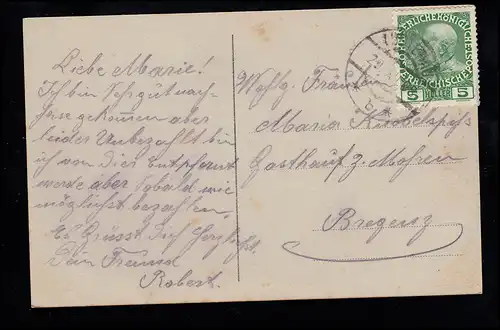 Liebe Marie!
Ich bin Sehr gut nach
hase gekomen aber
leider Unbezahlt bin
ich von Dier Entpfernt
werde aber Sobald wie
möglichst bezahlen
Es Grüsst Dich Herzlichst
Dein Freund
Robert.
Wohlg. Frau
Maria
Gasthauf z. Mohren
Bregenz
KAISERLICHE KÖNIGLICHE
ÖSTERREICHISCHE
5 HELLER 5